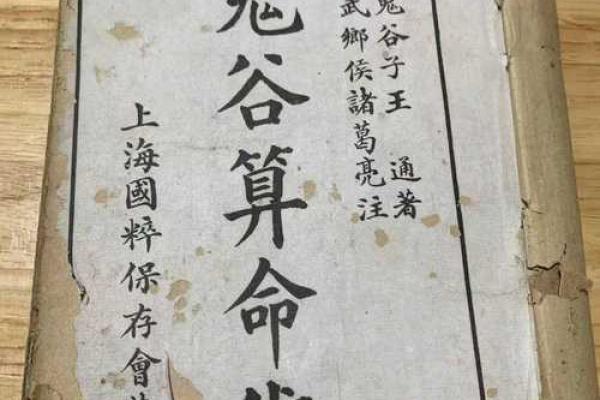 鬼谷子王 通著
武鄉侯諸葛亮注
鬼谷算命
上海國粹保存會